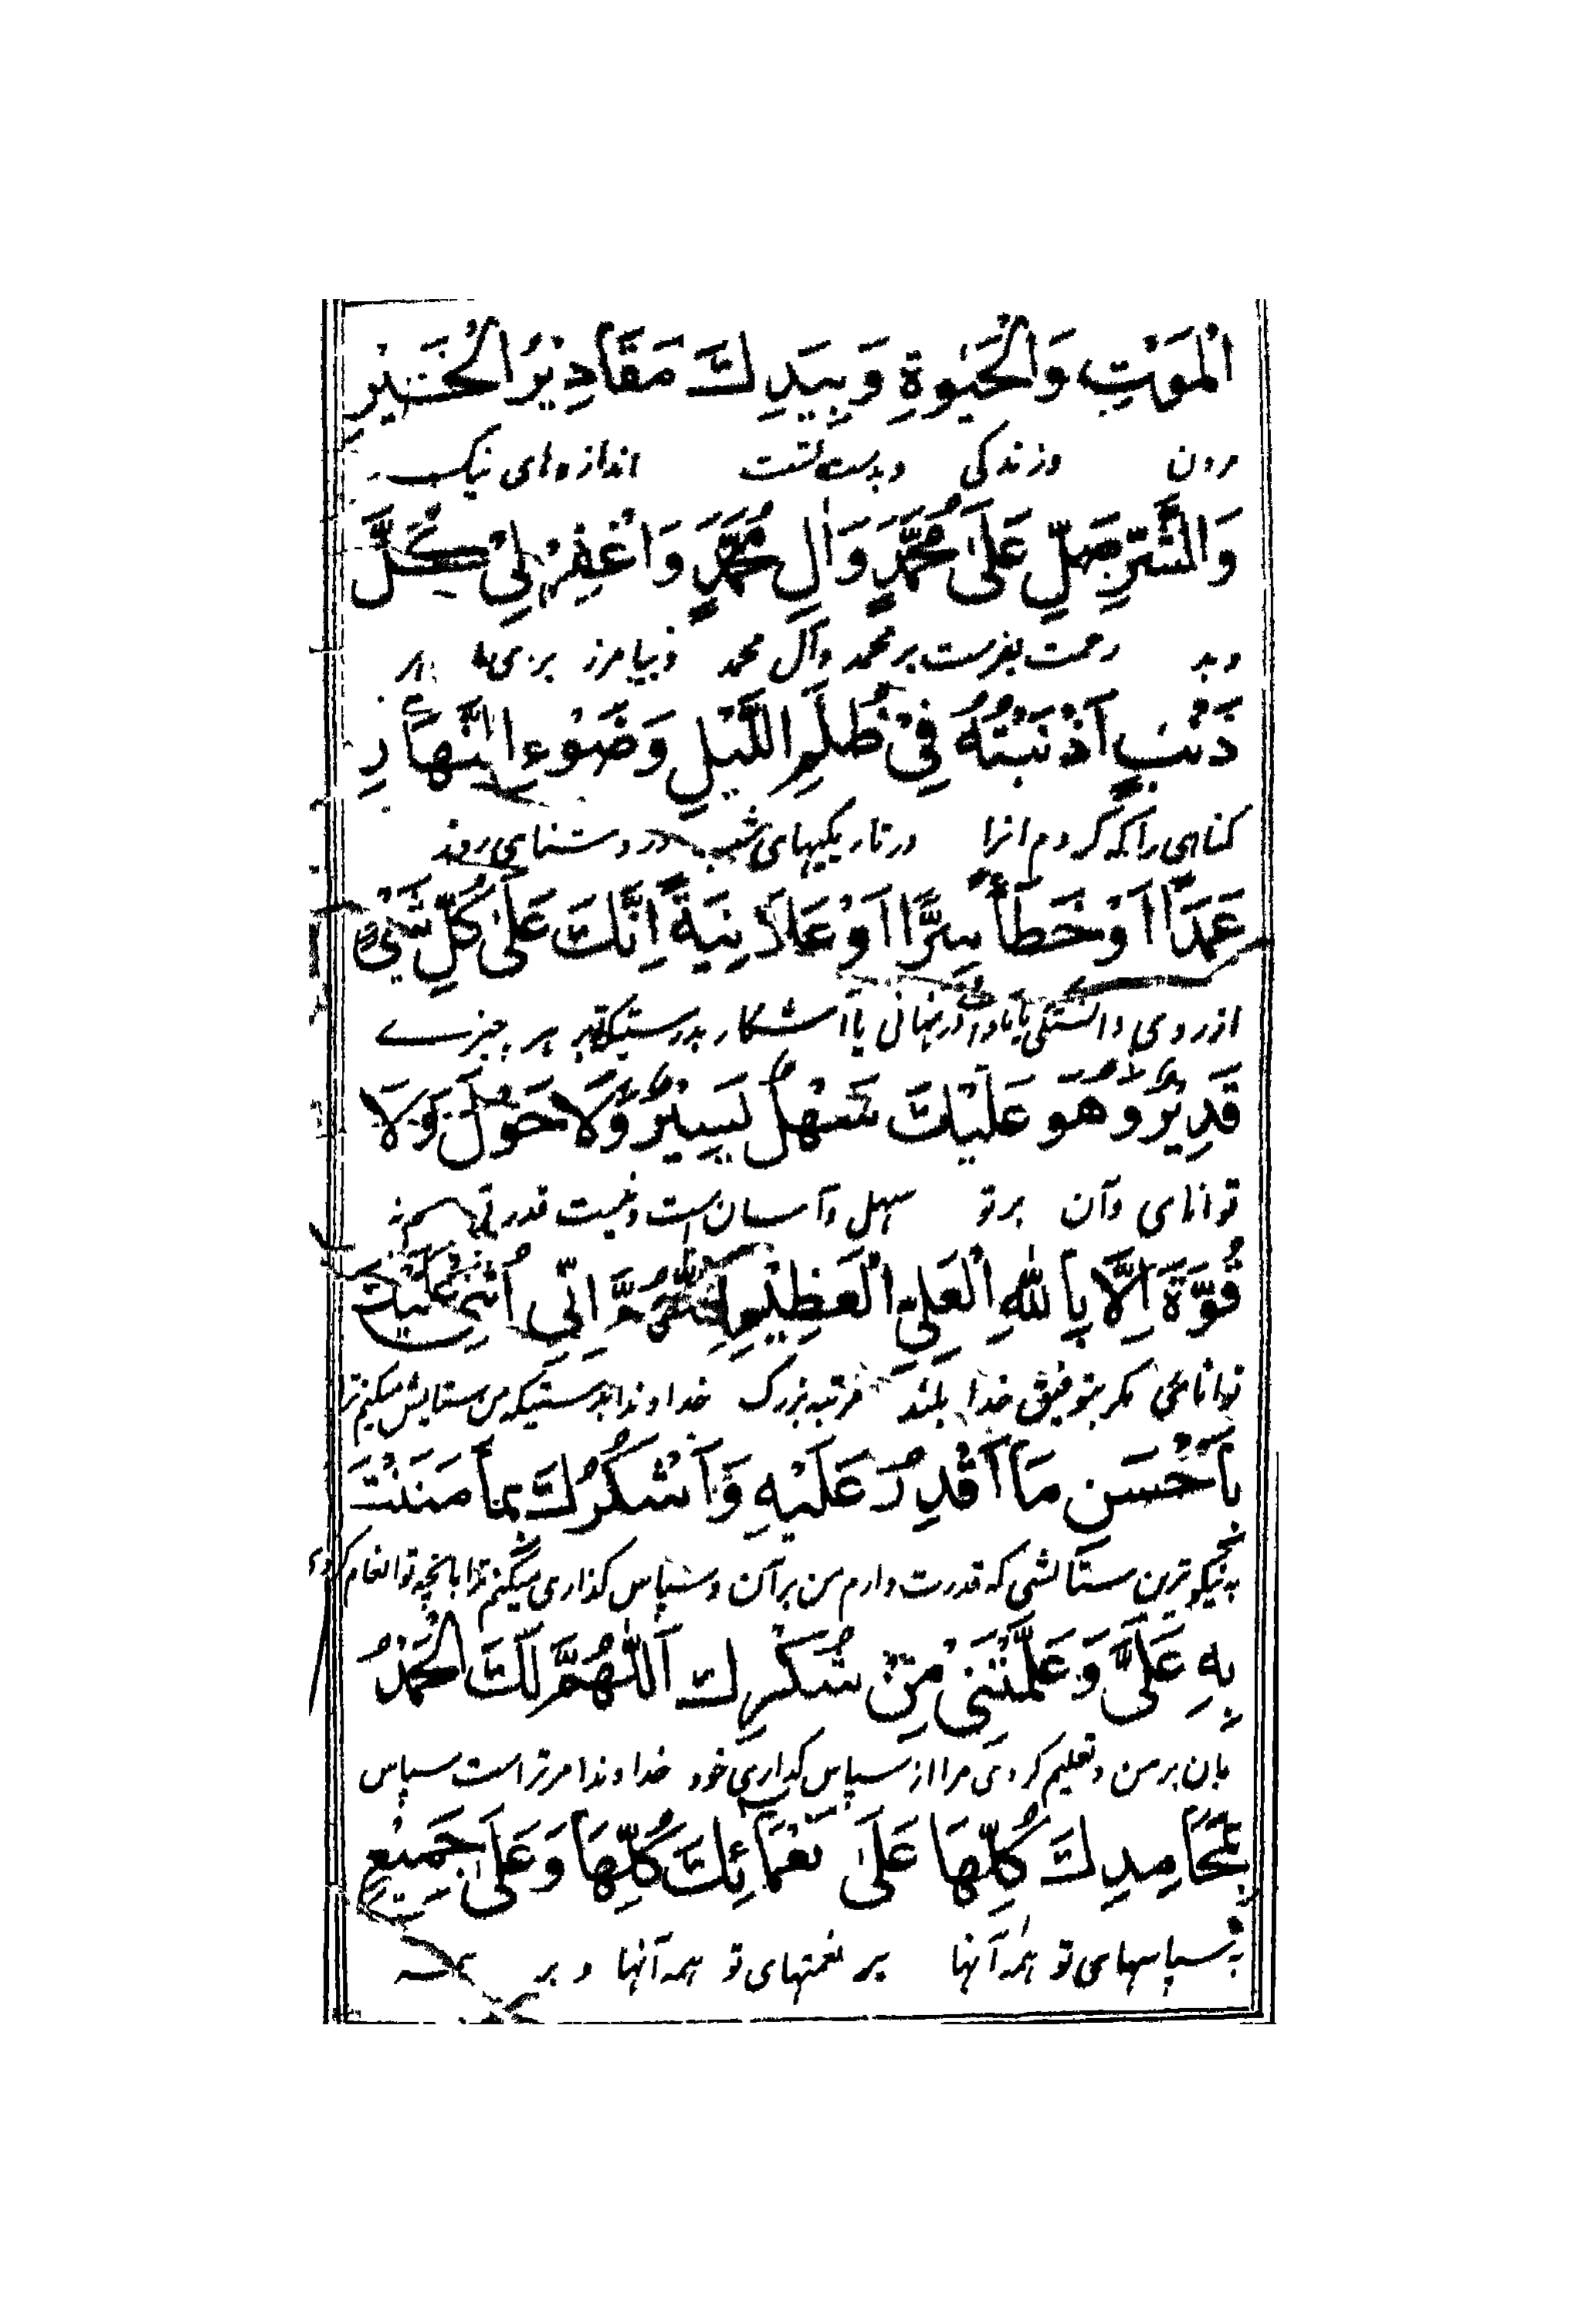 الْمَوْتِ وَالْحَيٰوةِ وَبِيَدِكَ مَقَادِيْرُ الْخَيْرِ
مردن وزندگی وبدست تست اندازهای نیک
وَالشَّرِّ صَلِّ عَلىٰ مُحَمَّدٍ وَاٰلِ مُحَمَّدٍ وَاغْفِرْ لِىْ كُلَّ
وبد رحمت بفرست بر محمد وآل محمد وبیامرز
ذَنْبٍ اَذْنَبْتُهُ فِىْ ظُلَمِ اللَّيْلِ وَضَوْءِ النَّهَارِ
کناهی را که کردم انرا در تاریکیهای شب ودر روشنای روز
عَمَدًا اَوْ خَطَأً سِرًّا اَوْ عَلَانِيَةً اِنَّكَ عَلىٰ كُلِّ شَىْءٍ
از روی دانستگی یا در نهانی یا آشکار بدرستیکه تو بر هر چیزے
قَدِيْرٌ وَهُوَ عَلَيْكَ سَهْلٌ يَسِيْرٌ وَلَا حَوْلَ وَلَا
توانای وآن بر تو سهل وآسان است ونیست قدرتی
قُوَّةَ اِلَّا بِاللّٰهِ الْعَلِىِّ الْعَظِيْمِ اَللّٰهُمَّ اِنِّى اُثْنِىْ عَلَيْكَ
توانای مکر بتوفیق خدا بلند مرتبه بزرک خداوندا بدرستیکه من ستایش میکنم ترا
بِاَحْسَنِ مَا اَقْدِرُ عَلَيْهِ وَاَشْكُرُكَ بِمَا مَنَنْتَ
به نیکوترین ستائشی که قدرت دارم من بر آن وسپاس کذاری میکنم ترا بانچه تو انعام کردی
بِهِ عَلَىَّ وَعَلَّمْتَنِىْ مِنْ شُكْرِكَ اَللّٰهُمَّ لَكَ الْحَمْدُ
بان بر من وتعلیم کردی مرا از سپاس کذاری خود خداوندا مر تراست سپاس
بِمَحَامِدِكَ كُلِّهَا عَلىٰ نَعْمَائِكَ كُلِّهَا وَعَلىٰ جَمِيْعِ
به سپاسهای تو همه آنها بر نعمتهای تو همه آنها و بر همه